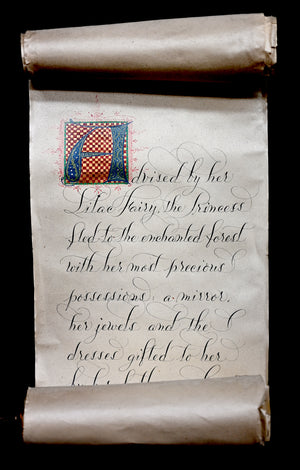 Advised by her
Lilac Fairy, the Princess
fled to the enchanted forest
with her most precious
possessions: a mirror,
her jewels and the
dresses gifted to her
by her father